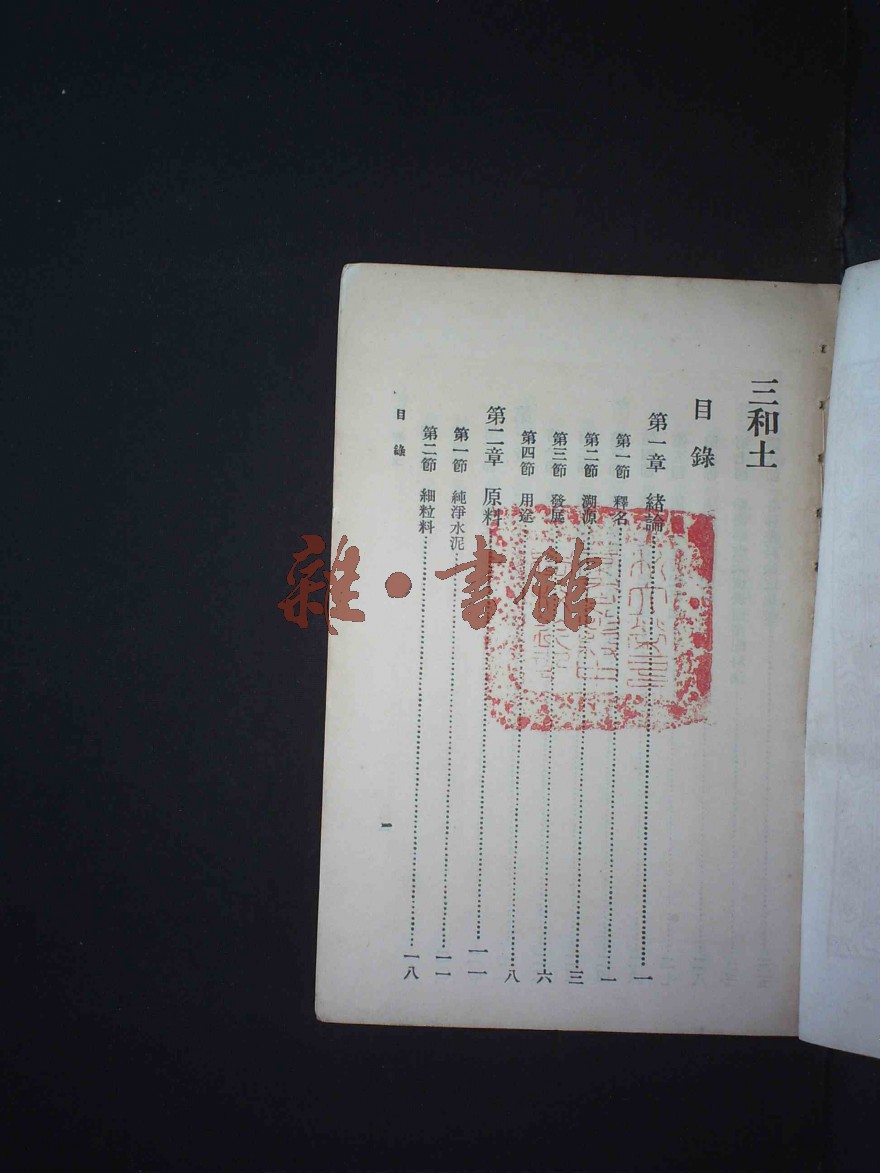 三和土
目錄
第一章 緒論………一
第一節 釋名………一
第二節 溯源………三
第三節 發展………六
第四節 用途………八
第二章 原料………一一
第一節 純淨水泥………一一
第二節 細粒料………一八
目錄
一
雜·書館